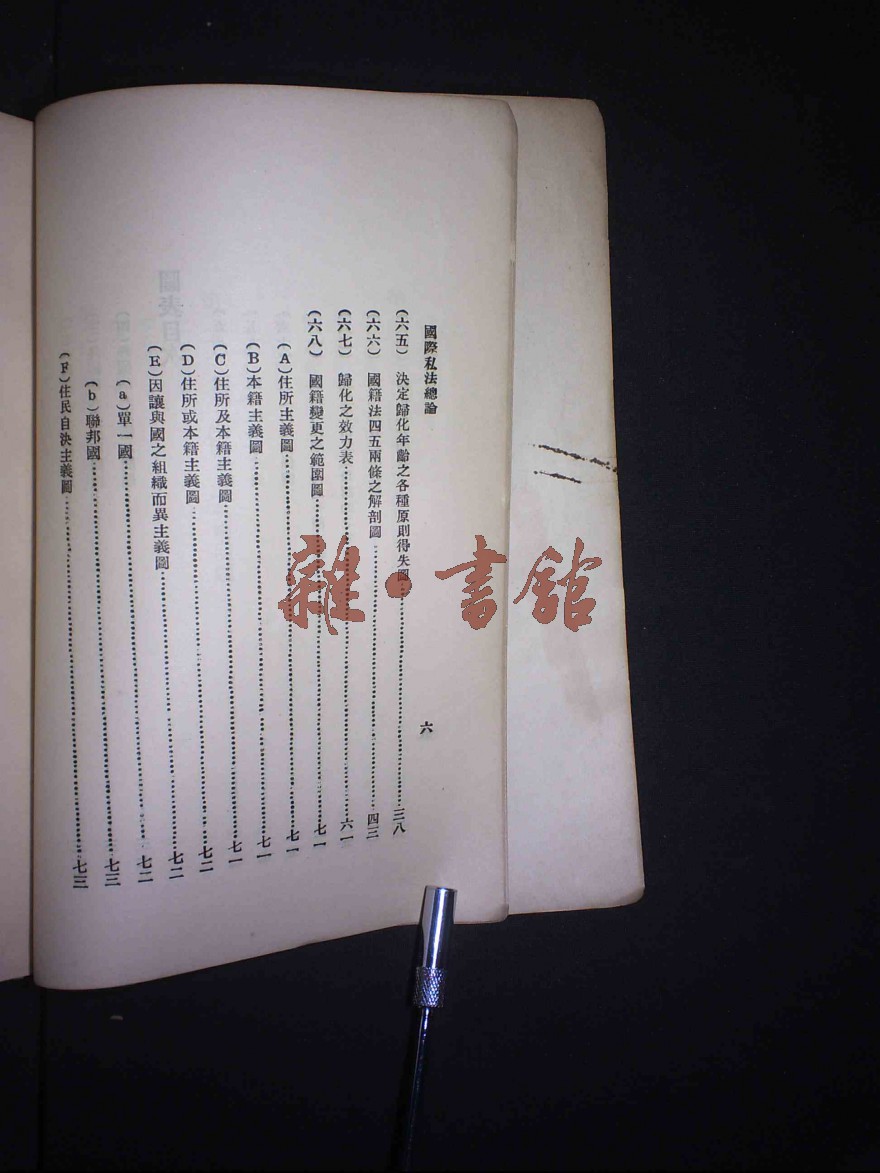 國際私法總論
六
(六五) 決定歸化年齡之各種原則得失圖……三八
(六六) 國籍法四五兩條之解剖圖……四三
(六七) 歸化之效力表……六一
(六八) 國籍變更之範圍圖……七一
(A)住所主義圖……七一
(B)本籍主義圖……七一
(C)住所及本籍主義圖……七一
(D)住所或本籍主義圖……七二
(E)因讓與國之組織而異主義圖……七二
(a)單一國……七二
(b)聯邦國……七三
(F)住民自決主義圖……七三
雜·書館